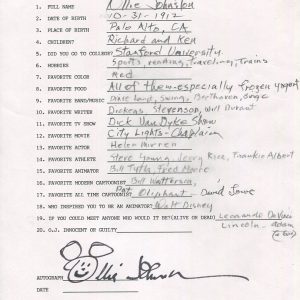 1. FULL NAME Ollie Johnston
2. DATE OF BIRTH 10-31-1912
3. PLACE OF BIRTH Palo Alto, CA
4. CHILDREN? Richard and Ken
5. DID YOU GO TO COLLEGE? Stanford University
6. HOBBIES Sports, reading, traveling, Trains
7. FAVORITE COLOR Red
8. FAVORITE FOOD All of them-especially frozen yogurt
9. FAVORITE BANDS/MUSIC Dixie land, swing, Beethoven,
10. FAVORITE WRITER Dickens, Stevenson, Will Durant
11. FAVORITE TV SHOW Dick Van Dyke Show
12. FAVORITE MOVIE City Lights-Chaplain
13. FAVORITE ACTOR Helen
14. FAVORITE ATHLETE Steve Young, Jerry Rice, Frankie Albert
15. FAVORITE ANIMATOR Bill Tytla, Fred Moore
16. FAVORITE MODERN CARTOONIST Bill Watterson,
17. FAVORITE ALL TIME CARTOONIST Pat Oliphant - David Lowe
18. WHO INSPIRED YOU TO BE AN ANIMATOR? Walt Disney
19. IF YOU COULD MEET ANYONE WHO WOULD IT BE? (ALIVE OR DEAD) Leonardo DaVinci
Lincoln - Adam
20. O.J. INNOCENT OR GUILTY
AUTOGRAPH Ollie Johnston
DATE